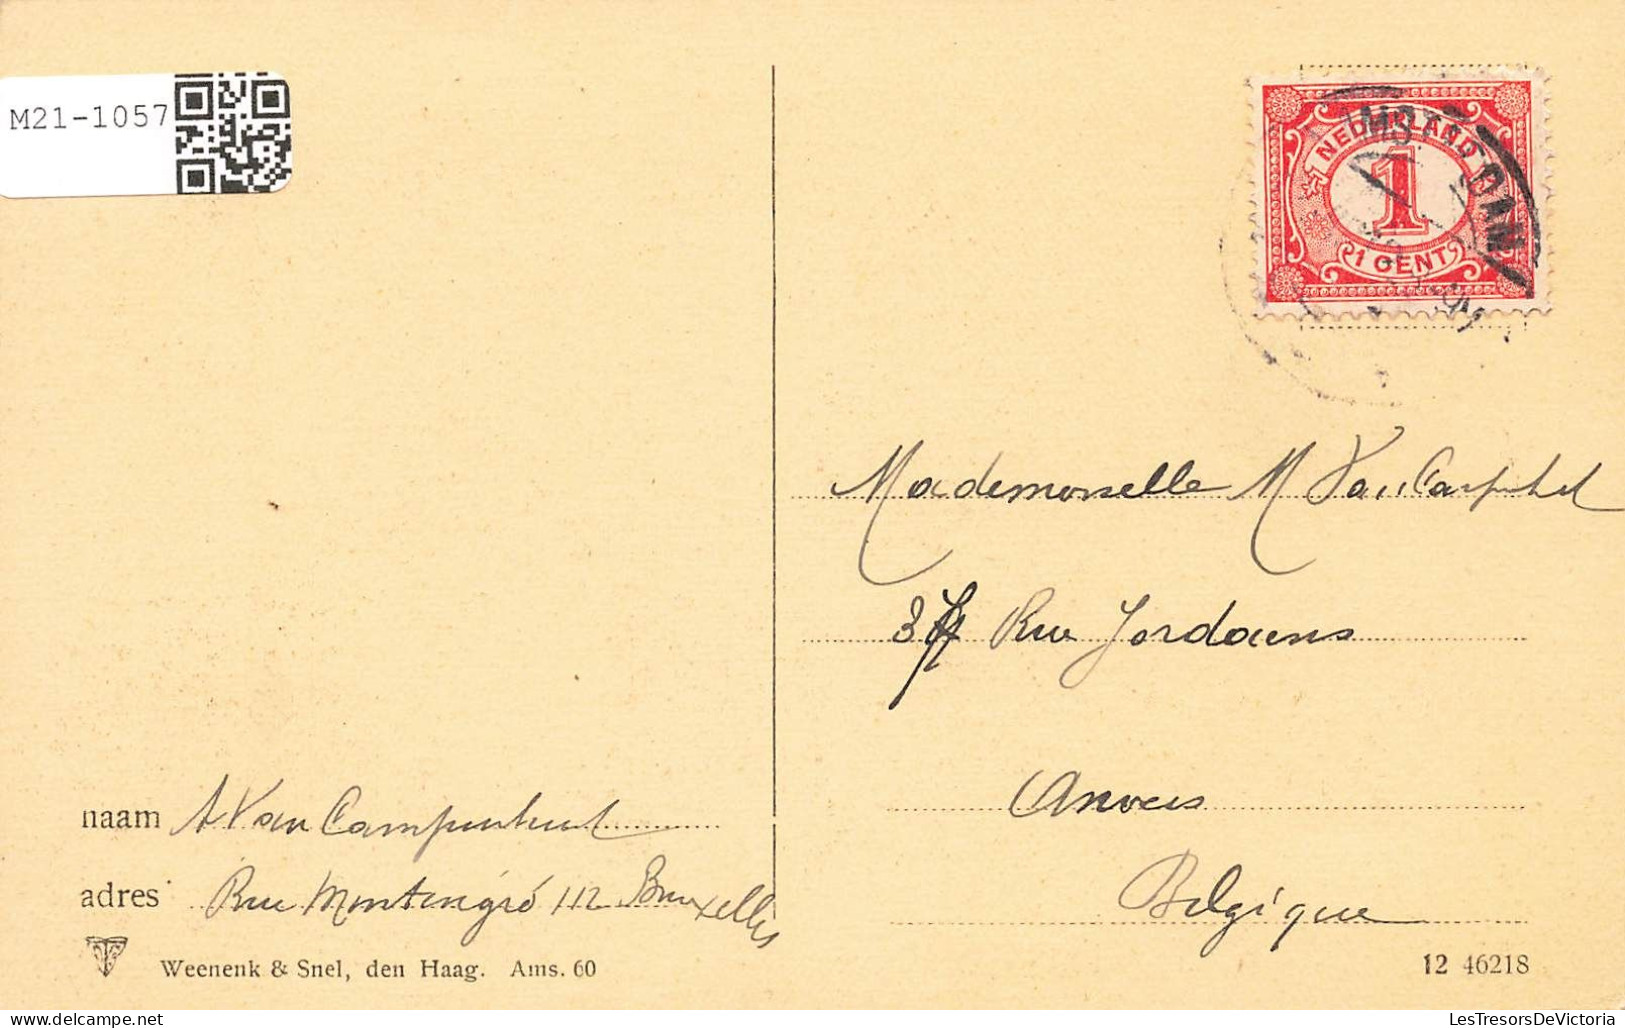 M21-1057
NEDERLAND
1
1 CENT
Mademoiselle M Van Campenhout
Rue Jordaens
Anvers
Belgique
naam A Van Campenhout
adres Rue Montenégro 112 Bruxelles
Weenenk & Snel, den Haag. Ams. 60
12 46218
LesTresorsDeVictoria